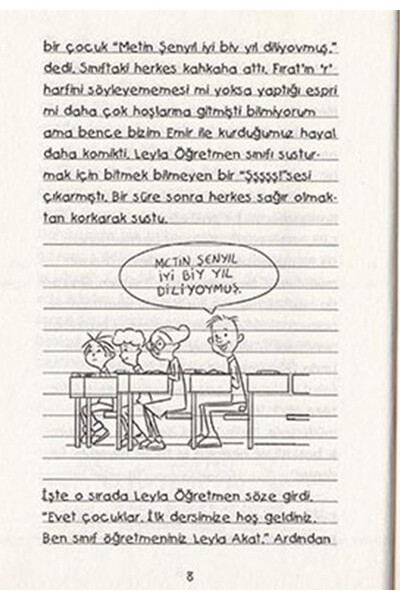 bir çocuk "Metin Şenyıl iyi biv yıl diliyovmuş."
dedi. Sınıftaki herkes kahkaha attı. Fırat'ın 'r'
harfini söyleyememesi mi yoksa yaptığı espri
mi daha çok hoşlarına gitmişti bilmiyorum
ama bence bizim Emir ile kurduğumuz hayal
daha komikti. Leyla Öğretmen sınıfı sustur-
mak için bitmek bilmeyen bir "Şşşşş!"sesi
çıkarmıştı. Bir süre sonra herkes sağır olmak-
tan korkarak sustu.
METİN ŞENYIL
İYİ BİY YIL
DİLİYOYMUŞ.
İşte o sırada Leyla Öğretmen söze girdi.
"Evet çocuklar. İlk dersimize hoş geldiniz.
Ben sınıf öğretmeniniz Leyla Akat." Ardından
8